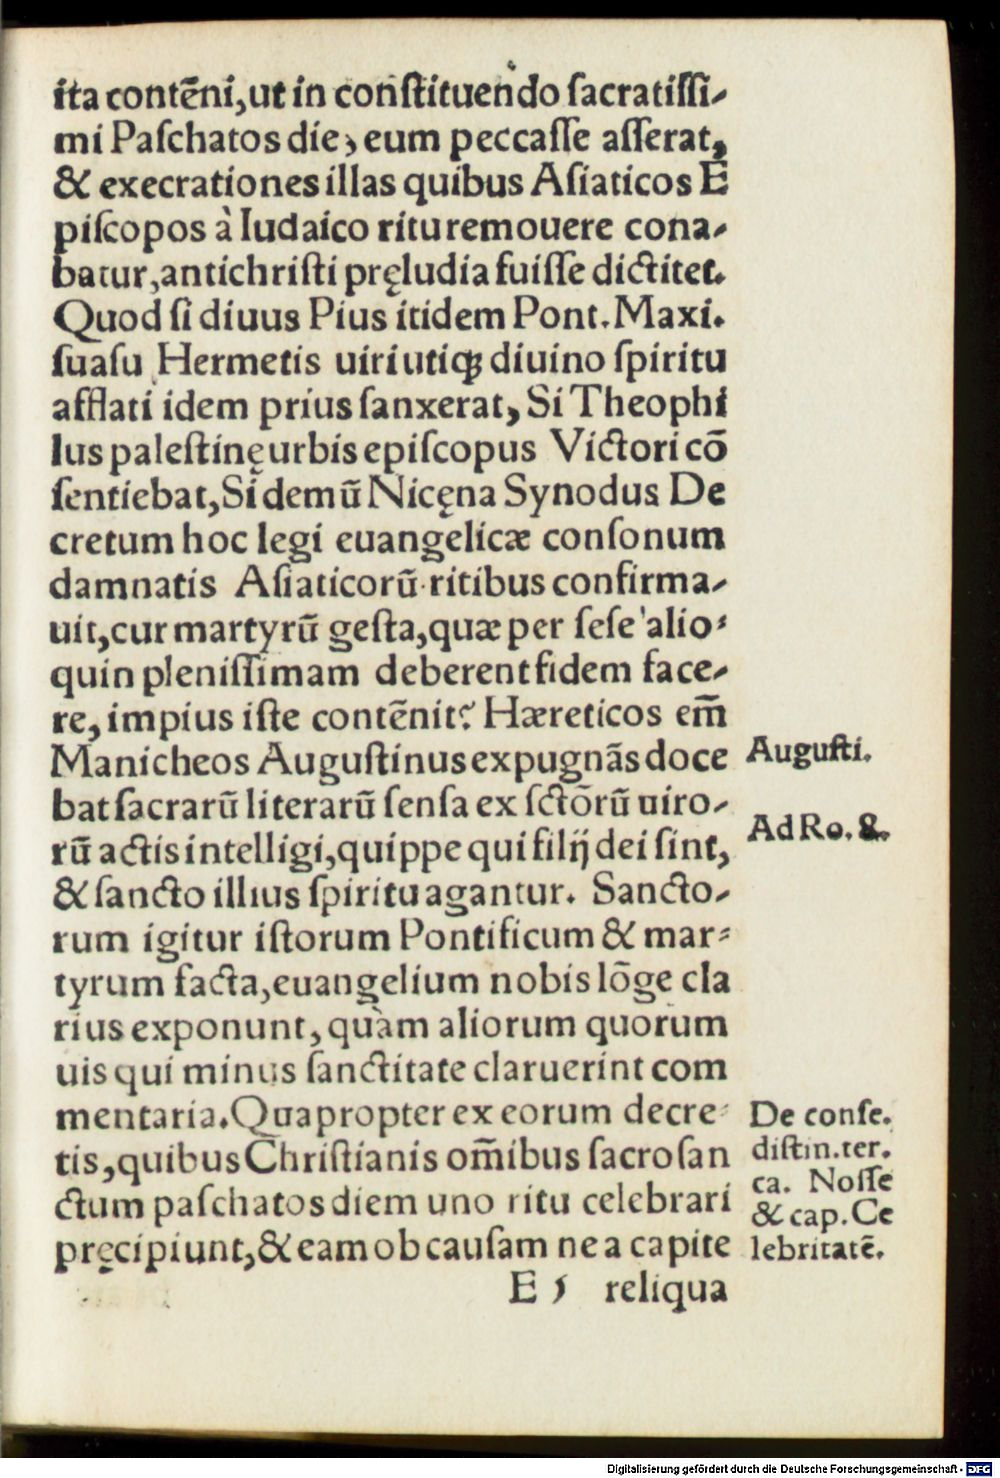 ita contēni,ut in conſtituendo ſacratiſſi-
mi Paſchatos die, eum peccaſſe aſſerat,
& execrationes illas quibus Aſiaticos E
piſcopos à Iudaico ritu remouere cona-
batur,antichriſti pręludia fuiſſe dictitet.
Quod ſi diuus Pius itidem Pont.Maxi.
ſuaſu Hermetis uiri utiqꝫ diuino ſpiritu
afflati idem prius ſanxerat, Si Theophi
lus paleſtinę urbis epiſcopus Victori cō
ſentiebat,Si demū Nicęna Synodus De
cretum hoc legi euangelicæ conſonum
damnatis Aſiaticorū ritibus confirma-
uit,cur martyrū geſta,quæ per ſeſe alio-
quin pleniſſimam deberent fidem face-
re, impius iſte contēnit? Hæreticos em̄
Manicheos Auguſtinus expugnās doce
bat ſacrarū literarū ſenſa ex ſctōrū uiro-
rū actis intelligi,quippe qui filij dei ſint,
& ſancto illius ſpiritu agantur. Sancto-
rum igitur iſtorum Pontificum & mar-
tyrum facta,euangelium nobis lōge cla
rius exponunt, quàm aliorum quorum
uis qui minus ſanctitate claruerint com
mentaria.Quapropter ex eorum decre-
tis,quibus Chriſtianis om̄ibus ſacroſan
ctum paſchatos diem uno ritu celebrari
pręcipiunt,& eam ob cauſam ne a capite
E 5 reliqua
Auguſti.
Ad Ro. 8.
De conſe.
diſtin.ter.
ca. Noſſe
& cap. Ce
lebritatē.
Digitalisierung gefördert durch die Deutsche Forschungsgemeinschaft - DFG